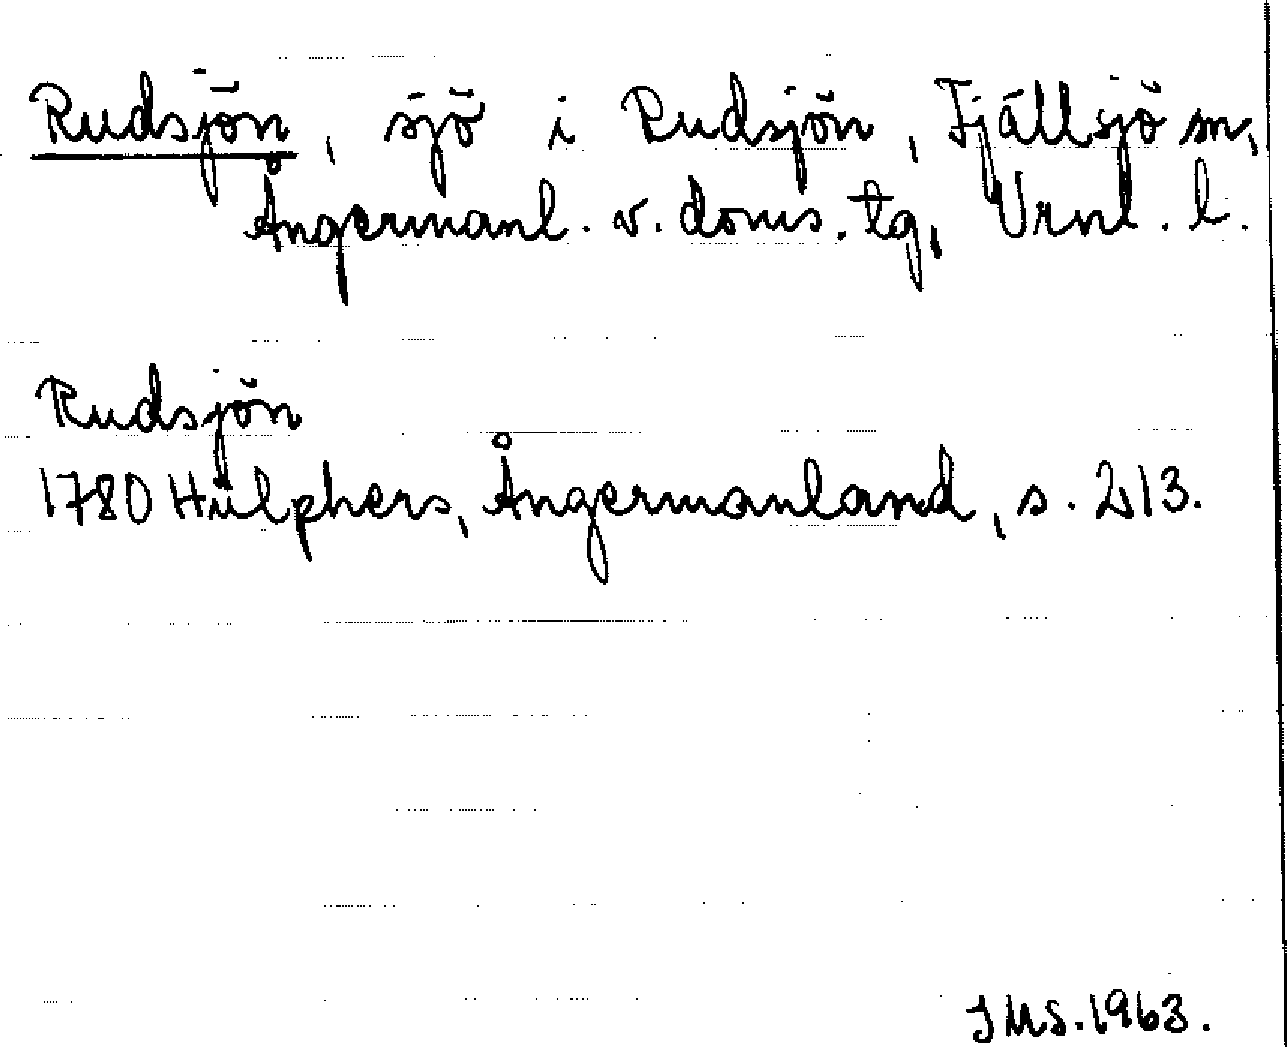 Rudsjön, sjö i Rudsjön, Fjällsjö sn,
Ångermanl. v. doms. tg, Vrnl. l.
Rudsjön
1780 Hülphers, Ångermanland, s. 213.
JMS. 1963.